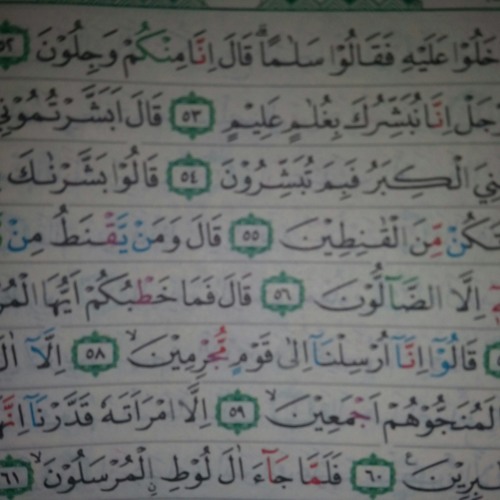 خَلُوْا عَلَيْهِ فَقَالُوْا سَلٰمًاۗ قَالَ اِنَّا مِنْكُمْ وَجِلُوْنَ ٥٢
جَلْ اِنَّا نُبَشِّرُكَ بِغُلٰمٍ عَلِيْمٍ ٥٣ قَالَ اَبَشَّرْتُمُوْنِ
نِيَ الْكِبَرُ فَبِمَ تُبَشِّرُوْنَ ٥٤ قَالُوْا بَشَّرْنٰكَ
تَكُنْ مِّنَ الْقٰنِطِيْنَ ٥٥ قَالَ وَمَنْ يَّقْنَطُ مِنْ
اِلَّا الضَّاۤلُّوْنَ ٥٦ قَالَ فَمَا خَطْبُكُمْ اَيُّهَا الْمُرْ
قَالُوْٓا اِنَّآ اُرْسِلْنَآ اِلٰى قَوْمٍ مُّجْرِمِيْنَۙ ٥٨ اِلَّآ اٰلَ
لَمُنَجُّوْهُمْ اَجْمَعِيْنَۙ ٥٩ اِلَّا امْرَاَتَهٗ قَدَّرْنَآ اِنَّهَا
بِرِيْنَ ࣖ ٦٠ فَلَمَّا جَاۤءَ اٰلَ لُوْطِ ِۨالْمُرْسَلُوْنَۙ ٦١